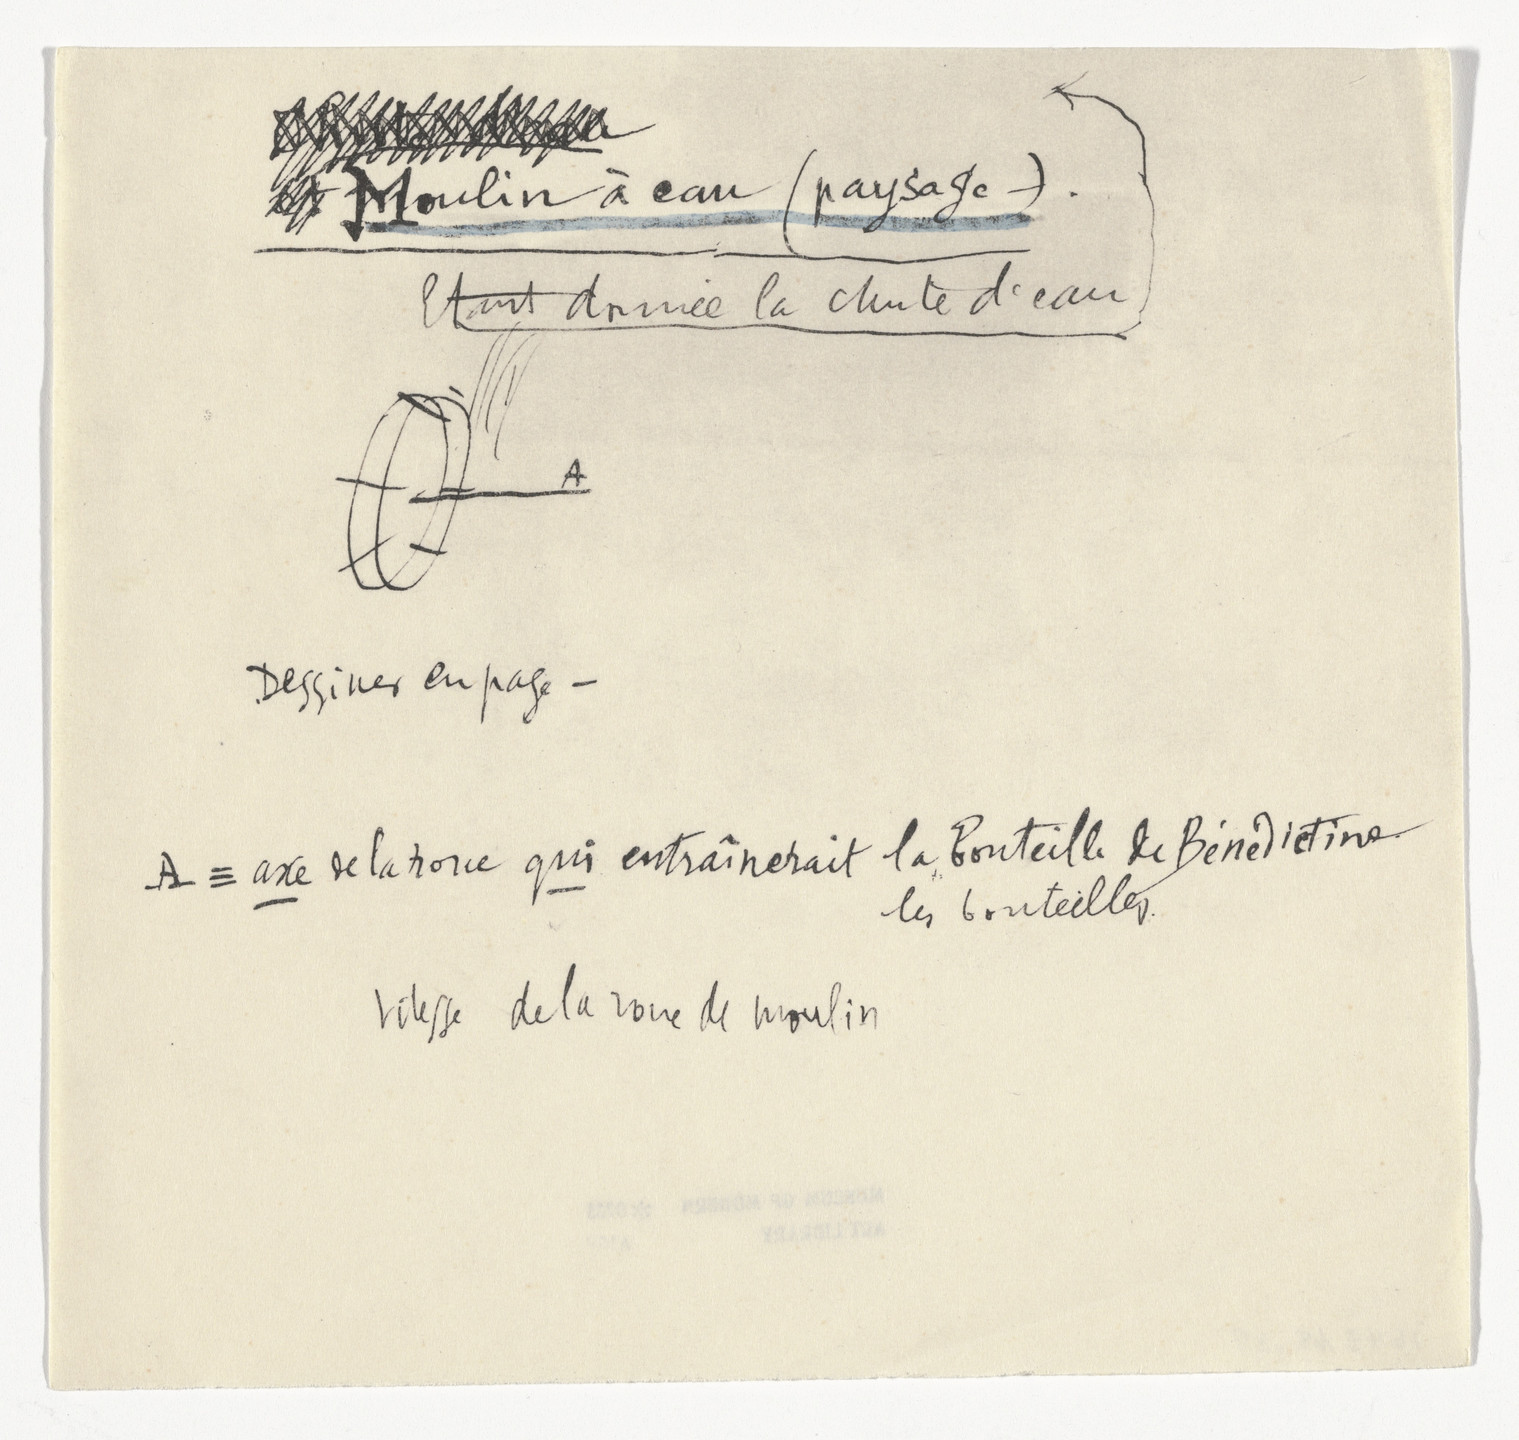 Moulin à eau (paysage –).
Etant donnée la chute d'eau
A
Dessiner en page –
A ≡ axe de la roue qui entraînerait la Bouteille de Bénédictine
les bouteilles.
Vitesse de la roue de moulin
MUSEUM OF MODERN
ART LIBRARY